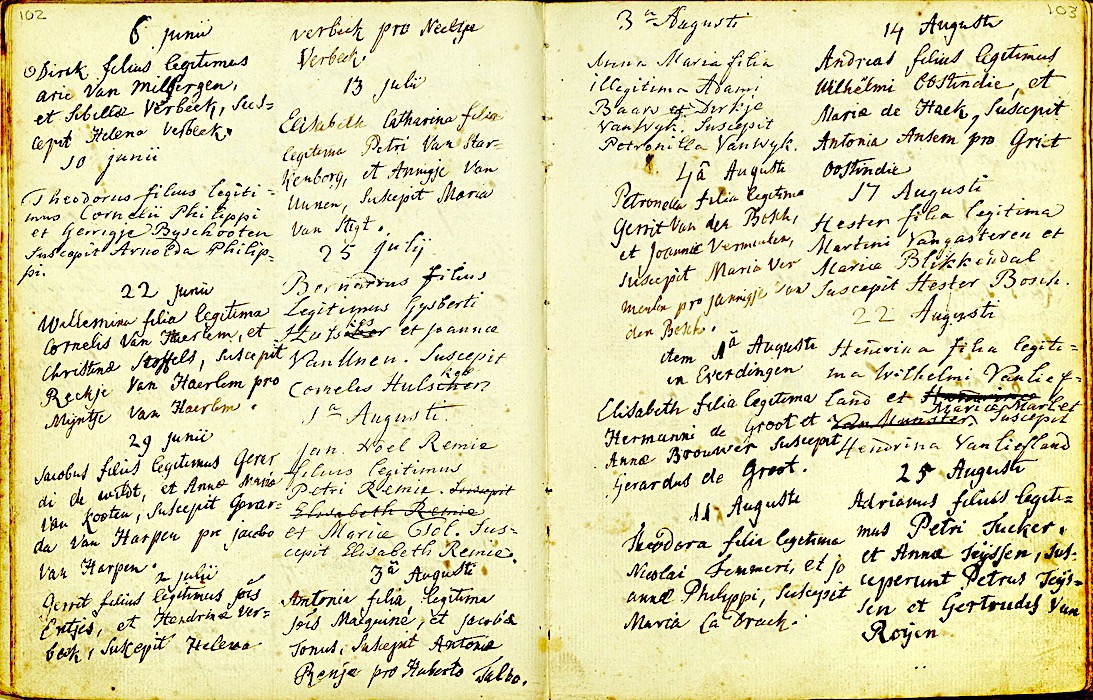 102
6 junii
Dirck filius legitimus
arie Van Milfergen,
et Sibillæ Verbeek, Sus-
cepit Helena Verbeek.
10 junii
Theodorus filius legiti-
mus Cornelii Philippi
et Gerrigje Byschooten
Suscepit Arnolda Philip-
pi.
22 junii
Willemina filia legitima
Cornelis Van Haerlem, et
Christinæ Stoffels, Suscepit
Reekje Van Haerlem pro
Mijntje van Haerlem.
29 junii
Jacobus filius legitimus Gerar
di de wildt, et Annæ Maria
Van Kooten, Suscepit Gerar-
da Van Harpen pro jacobo
Van Harpen.
2 julii
Gerrit filius legitimus jois
Entjes, et Hendrinæ Ver-
beek, Suscepit Helena
verbeek pro Neeltje
Verbeek.
13 julii
Elisabeth Catharina filia
legitima Petri Van Star-
kenborg, et Annigje Van
Uunen, Suscepit Maria
Van Stigt.
25 julij
Bernardus filius
Legitimus Gysberti
et joanna
Van Unen. Suscepit
Cornelis
1a Augusti
Jan. Noel Remie
filius legitimus
Petri Remie. Suscepit
Elisabeth Remie
et Maria Tol. Sus-
cepit Elisabeth Remie.
3a Augusti
Antonia filia legitima
jois Macquine, et jacobæ
Tonus, Suscepit Antonia
Renje pro Huberto Talbo.
103
3a Augusti
Anna Maria filia
illegitima Adami
Baars et Dirkje
Van Wyk. Suscepit
Petronilla Van Wyk.
4a Augusti
Petronella filia legitima
Gerrit Van den Bosch,
et Joannæ Vermeulen,
Suscepit Maria Ver
meulen pro jannigje van
den Bosch.
dem 1a Augusti
in Everdingen
Elisabeth filia legitima
Hermanni de Groot et
Annæ Brouwer Suscepit
Gerardus de Groot.
11 Augusti
Theodora filia legitima
Nicolai Temmeri, et jo
annæ Philippi, Suscepit
Maria La Bruck.
14 Augusti
Andreas filius legitimus
Wilhelmi Oostindie, et
Mariæ de Haek, Suscepit
Antonia Ansem pro Griet
Oostindie
17 Augusti
Hester filia legitima
Martini Vangasteren et
Mariæ Blikkendal
Suscepit Hester Bosch.
22 Augusti
Hendrina filia legiti-
ma Wilhelmi Vanlief-
land et
Maria Market
Van Munster, Suscepit
Hendrina Vanliefland
25 Augusti
Adrianus filius legiti-
mus Petri Tucker,
et Annæ Teyssen, Sus-
ceperunt Petrus Teys-
sen et Gertrudes Van
Roijen